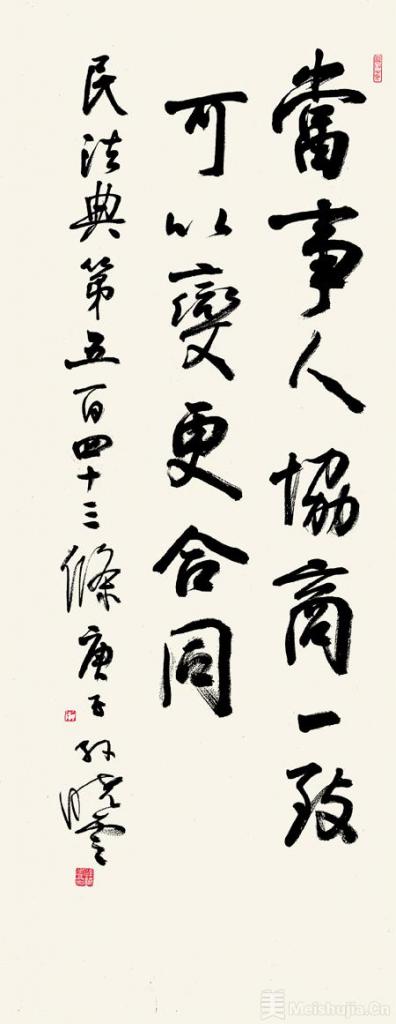 當事人協商一致
可以變更合同
民法典第五百四十三條庚子孫曉雲
美 Meishujia.Cn